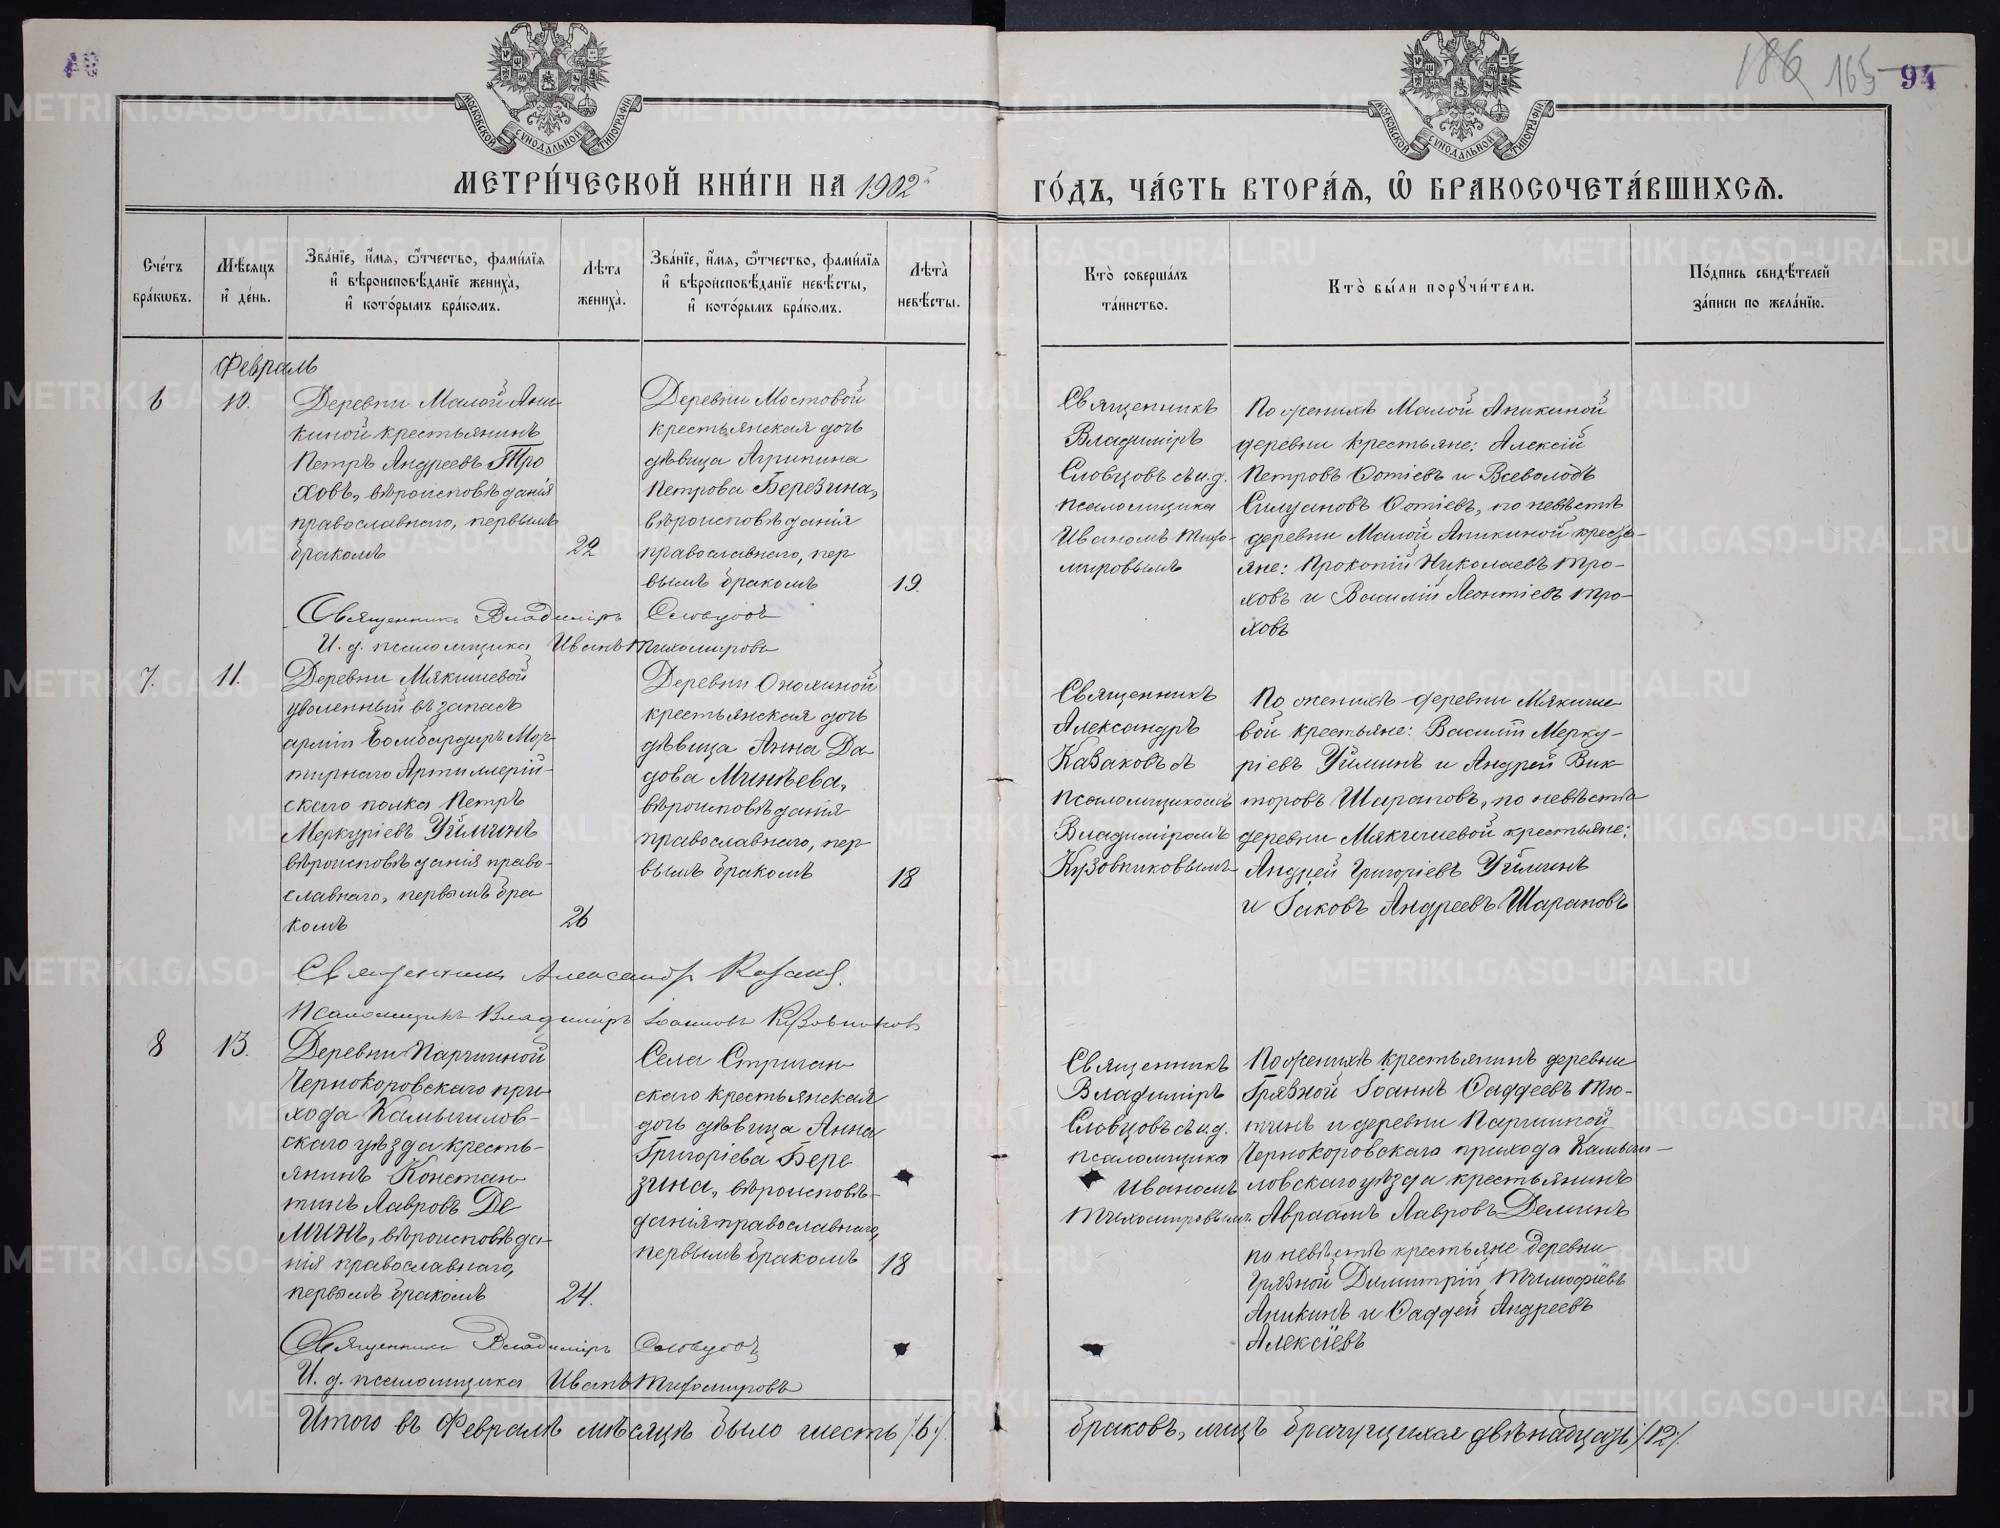 40
186 165 94
МОСКОВСКОЙ СѴНОДАЛЬНОЙ ТИПОГРАФІИ
МОСКОВСКОЙ СѴНОДАЛЬНОЙ ТИПОГРАФІИ
МЕТРИ́ЧЕСКОЙ КНИ́ГИ НА 1902
ГО́ДЪ, ЧА́СТЬ ВТОРА́Я, Ѽ БРАКОСОЧЕТА́ВШИХСЯ.
Сче́тъ
бра́кѡвъ.
Мѣ́сяцъ
и҆ де́нь.
Зва́нїе, и҆́мя, ѻ҆́тчество, фами́лїя
и҆ вѣроисповѣ́данїе жениха̀,
и҆ кото́рымъ бра́комъ.
Лѣ́та
жениха̀.
Зва́нїе, и҆́мя, ѻ҆́тчество, фами́лїя
и҆ вѣроисповѣ́данїе невѣ́сты,
и҆ кото́рымъ бра́комъ.
Лѣ́та
невѣ́сты.
Кто̀ соверша́лъ
та́инство.
Кто̀ бы́ли порꙋчи́тели.
По́дпись свидѣ́телей
за́писи по жела́нїю.
Февраль
6
10.
Деревни Малой Ани-
киной крестьянинъ
Петръ Андреевъ Тро
ховъ, вѣроисповѣданія
православнаго, первымъ
бракомъ
22
Деревни Мостовой
крестьянская дочь
дѣвица Агрипина
Петрова Березина,
вѣроисповѣданія
православнаго, пер
вымъ бракомъ
19.
Священникъ
Владиміръ
Словцовъ съ и.д.
псаломщика
Иваномъ Тихо-
мировымъ
По женихѣ Малой Аникиной
деревни крестьяне: Алексій
Петровъ Фотіевъ и Всеволодъ
Силуановъ Фотіевъ, по невѣстѣ
деревни Малой Аникиной кресть-
яне: Прокопій Николаевъ Тро-
ховъ и Василій Леонтіевъ Тро-
ховъ
Священникъ Владиміръ Словцовъ
И. д. псаломщика Иванъ Тихомировъ
7.
11.
Деревни Мякишевой
уволенный въ запасъ
арміи Бомбардиръ Мор-
тирнаго Артиллерій-
скаго полка Петръ
Меркуріевъ Уймин​ъ
вѣроисповѣданія право-
славнаго, первымъ бра
комъ
26
Деревни
крестьянская дочь
дѣвица Анна Да
дова Минѣева,
вѣроисповѣданія
православнаго, пер
вымъ бракомъ
18
Священникъ
Александръ
Казаковъ съ
Псаломщикомъ
Владиміромъ
Кузовниковымъ
По женихѣ деревни Мякише
вой крестьяне: Василій Мерку-
ріевъ Уйминъ и Андрей Вик-
торовъ Шараповъ, по невѣстѣ
деревни Мякишевой крестьяне:
Андрей Григоріевъ Уйминъ
и Іаковъ Андреевъ Шараповъ
Священникъ Александръ Казаковъ.
Псаломщикъ Владиміръ Іоанновъ Кузовниковъ
8
13.
Деревни Паршиной
Чернокоровскаго при
хода Камышлов-
скаго уѣзда кресть-
янинъ Констан
тинъ Лавровъ Де
минъ, вѣроисповѣда-
нія православнаго,
первымъ бракомъ
24.
Села Стриган
скаго крестьянская
дочь дѣвица Анна
Григоріева Бере
зина, вѣроисповѣ-
данія православнаго,
первымъ бракомъ
18
Священникъ
Владиміръ
Словцовъ съ и.д.
псаломщика
Иваномъ
Тихомировымъ
По женихѣ крестьянинъ деревни
Грязной Іоаннъ Фаддеевъ Тю-
тинъ и деревни Паршиной
Чернокоровскаго прихода Камыш-
ловскаго уѣзда крестьянинъ
Авраамъ Лавровъ Деминъ
по невѣстѣ крестьяне деревни
Грязной Димитрій Тимофіевъ
Аникинъ и Фаддей Андреевъ
Алексіевъ
Священникъ Владиміръ Словцовъ
И. д. псаломщика Иванъ Тихомировъ
Итого въ Февралѣ мѣсяцѣ было шесть /6/
браковъ, лицъ брачущихся двѣнадцать /12/.